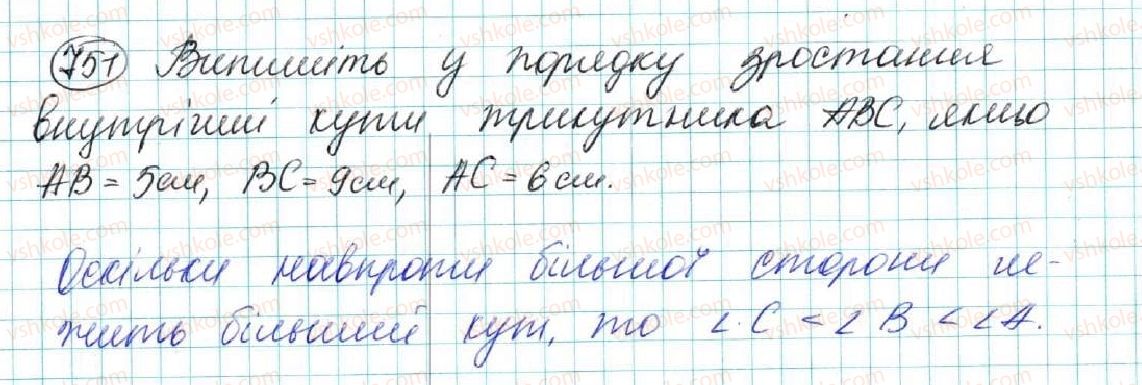 751 Випишіть у порядку зростання
внутрішні кути трикутника ABC, якщо
AB = 5см, BC = 9см, AC = 6см.
Оскільки навпроти більшої сторони ле-
жить більший кут, то ∠C < ∠B < ∠A.